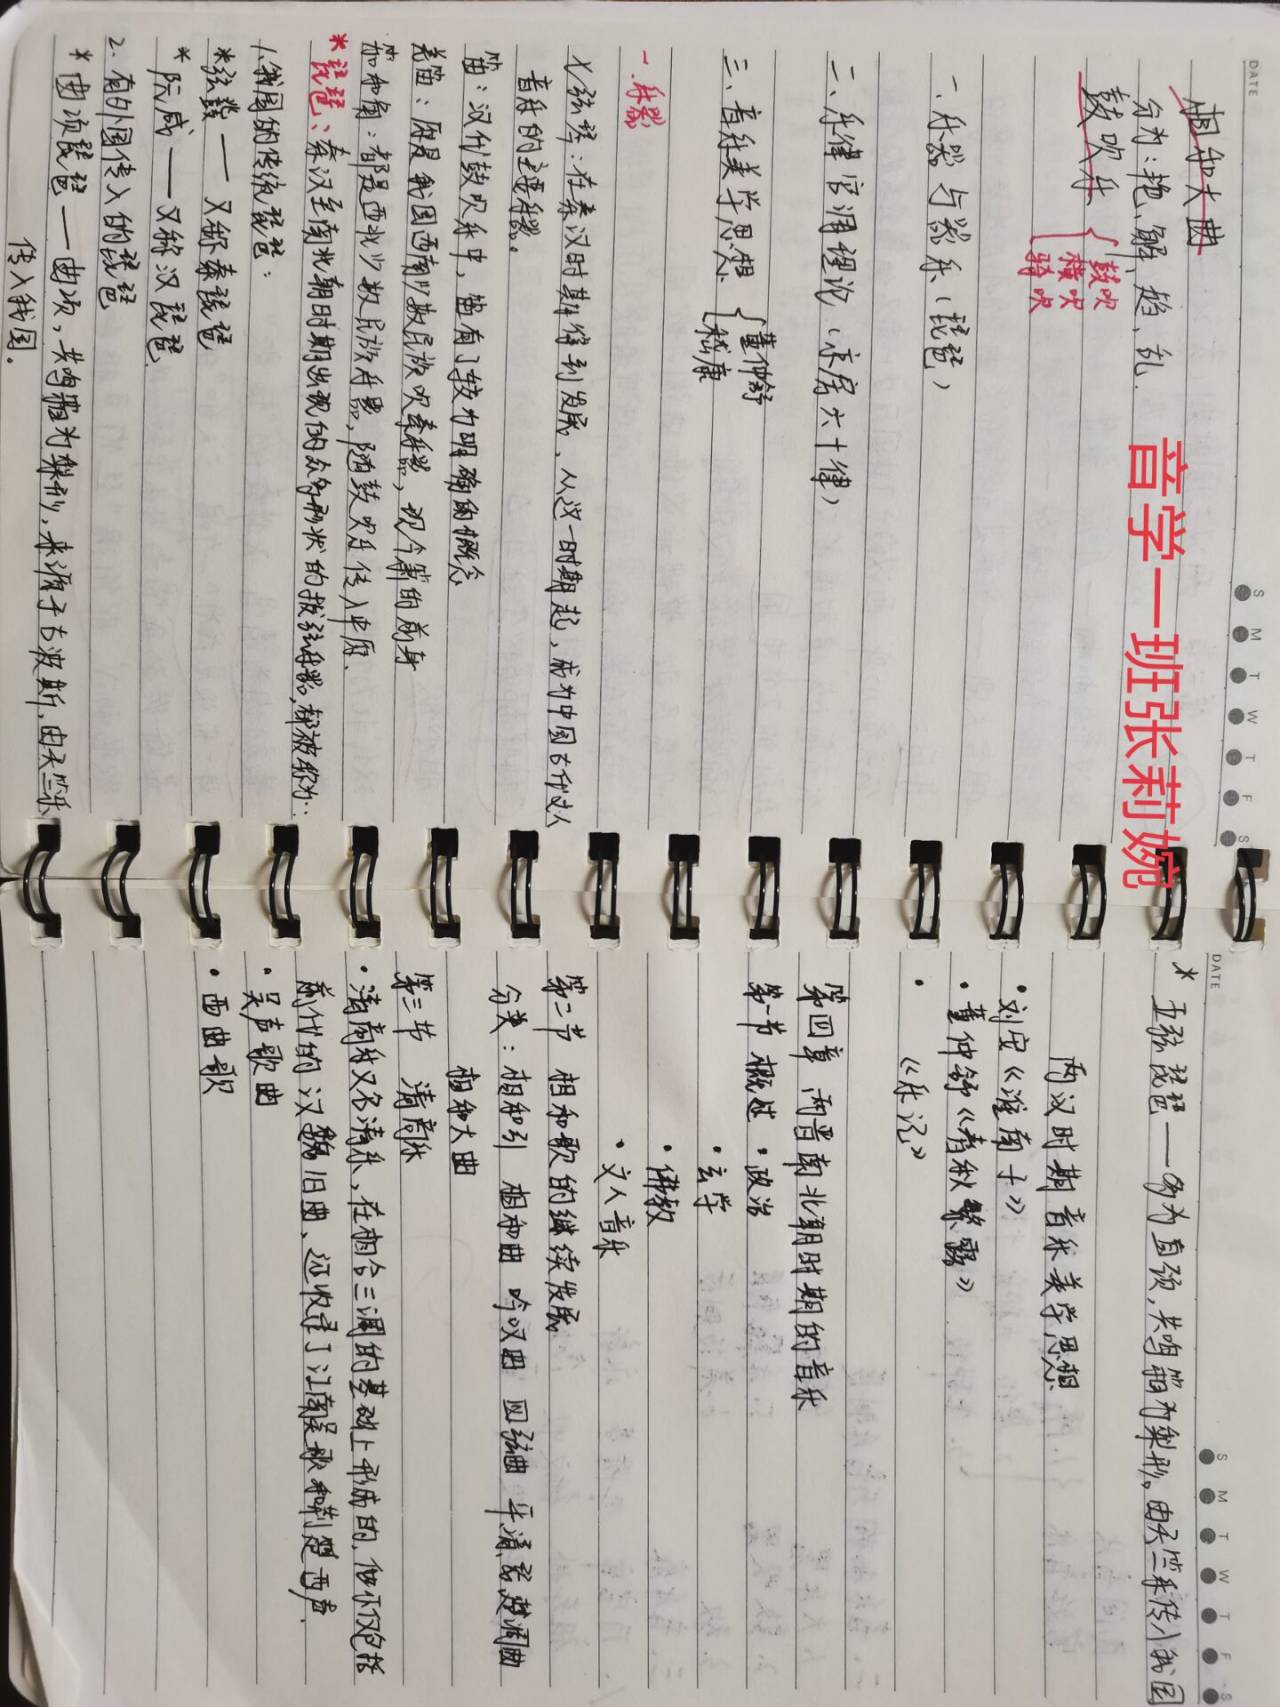 DATE
S M T W T F S
相和大曲
分为:艳、解、趋、乱.
鼓吹乐 { 鼓吹
横吹
骑吹
音学一班张莉婉
一、乐器与器乐(琵琶)
二、乐律宫调理论(京房六十律)
三、音乐美学思想 { 董仲舒
嵇康
一.乐器
七弦琴:在秦汉时期得到发展,从这一时期起,成为中国古代文人
音乐的主要乐器。
笛:汉代鼓吹乐中,笛有了较为明确的概念
羌笛:原是我国西南少数民族吹奏乐器,现今箫的前身
笳和角:都是西北少数民族乐器,随鼓吹乐传入中原、
*琵琶:秦汉至南北朝时期出现的众多形状的拨弦乐器,都被称为..
1.我国的传统琵琶:
*弦鼗——又称秦琵琶
*阮咸——又称汉琵琶.
2.有外国传入的琵琶
*曲项琵琶——曲项,共鸣箱为梨形,来源于古波斯,由天竺乐
传入我国。
DATE
S M T W T F S
* 五弦琵琶——多为直颈,共鸣箱为梨形。由天竺乐传入我国
两汉时期音乐美学思想
·刘安《淮南子》
·董仲舒《春秋繁露》
· 《乐记》
第四章、两晋南北朝时期的音乐
第一节 概述 ·政治
·玄学
·佛教
·文人音乐
第二节 相和歌的继续发展
分类:相和引 相和曲 吟叹曲 四弦曲 平、清、瑟、楚调曲
相和大曲
第三节 清商乐
·清商乐又名清乐,在相合三调的基础上形成的,他不仅包括
前代的汉魏旧曲、还收录了江南吴歌和荆楚西声.
·吴声歌曲
·西曲歌